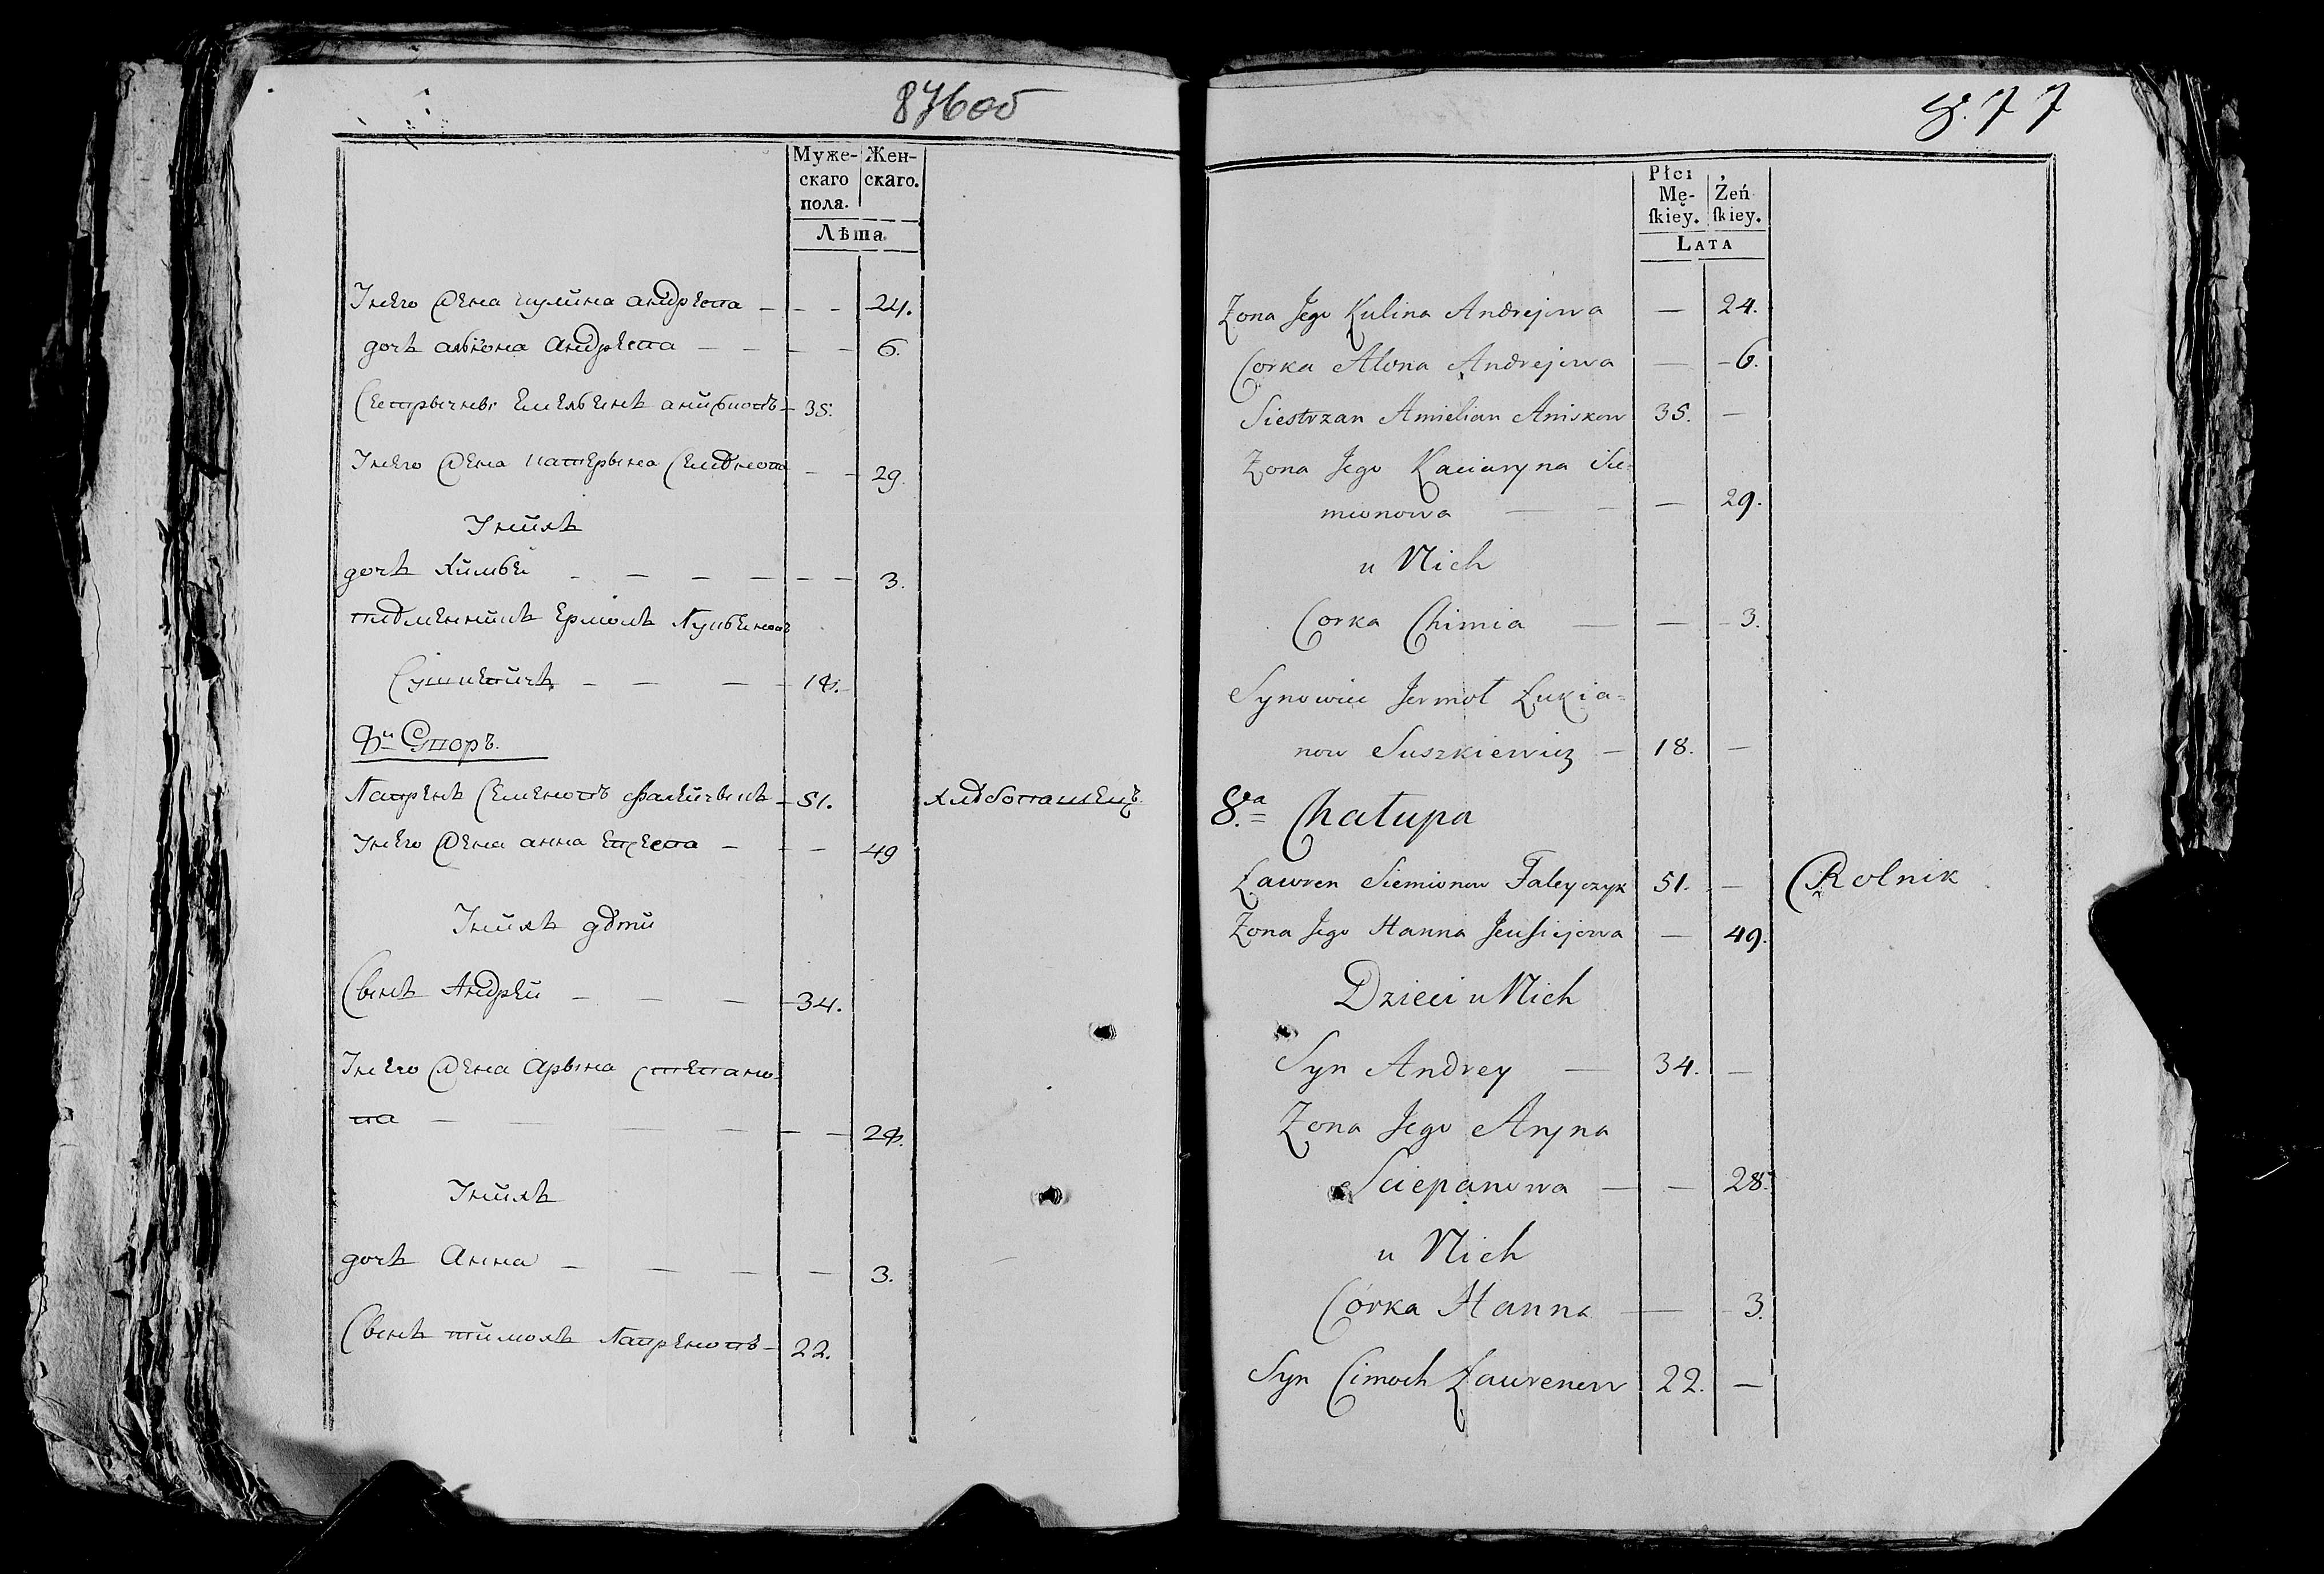 876об
Муже-
скаго
пола.
Жен-
скаго.
Лѣта
Унего жена кулина андреева — — — 24.
дочь алiона андреева — — — 6.
Сестрычны Емельянъ анисковъ — 35.
Унего жена катерына Семiонова — — 29.
Унихъ
дочь Химъя — — — — — — 3.
племенникъ Ермолъ Лукьяновъ
Сушкевичъ — — — 18.
8й Дворъ.
Лавренъ Семеновъ Фалейчыкъ — 51. хлѣбопашецъ
Унего жена анна евсеева — — — 49
Унихъ дѣти
Сынъ Андрей — — — 34.
Унего жена арына степано-
ва — — — — — — 28.
Унихъ
дочь Анна — — — — 3.
Сынъ тимохъ Лавреновъ — 22.
877
Płci
Mę-
ſkiey.
Żeń
ſkiey.
LATA
Zona Jego Kulina Andrejowa — 24.
Corka Alona Andrejowa — 6.
Siestrzan Amielian Aniskow 35. —
Zona Jego Kaciaryna Sie=
mionowa — — — 29.
u Nich
Corka Chimia — — 3.
Synowiec Jermoł Łukia=
now Suszkiewicz — 18. —
8.va Chałupa
Ławren Siemionow Faleyczyk 51. — Rolnik
Zona Jego Hanna Jeuſiejowa — 49.
Dzieci u Nich
Syn Andrey — 34. —
Zona Jego Aryna
Sciepanowa — — 28.
u Nich
Córka Hanna — 3.
Syn Cimoch Ławrenow 22. —